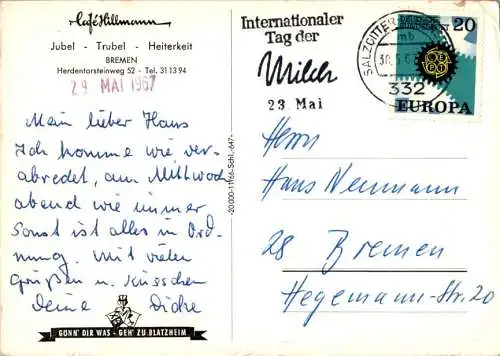 Café Hillmann
Jubel - Trubel - Heiterkeit
BREMEN
Herdentorsteinweg 52 - Tel. 31 13 94
29 MAI 1967
Mein lieber Hans
Ich komme wie ver-
abredet, am Mittwoch
abend wie immer
Sonst ist alles in Ord-
nung. Mit vielen
grüßen u. Küsschen
Deine Dicke
GÖNN' DIR WAS - GEH' ZU BLATZHEIM
-20 000-11766-Schl.-647-
Internationaler
Tag der
Milch
23 Mai
SALZGITTER
mb
332
20
CEPT
EUROPA
Herrn
Hans Neumann
28 Bremen
Hegemann-Str. 20